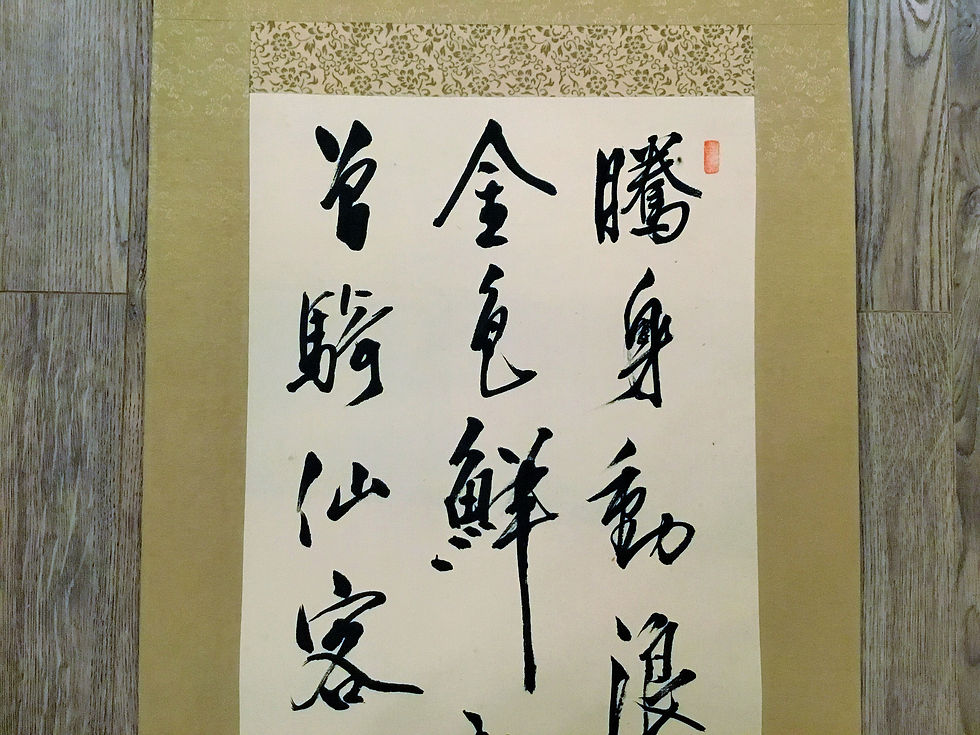 騰身動浪
金色鮮
曾騎仙客